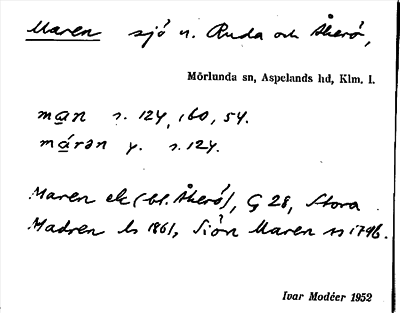 Maren sjö n. Ruda och Åkerö,
Mörlunda sn, Aspelands hd, Klm. l.
man s. 124, 160, 54.
márən y. s. 124.
Maren ek (bl. Åkerö), G 28, Stora
Madren ls 1861, Siön Maren ss 1796.
Ivar Modéer 1952